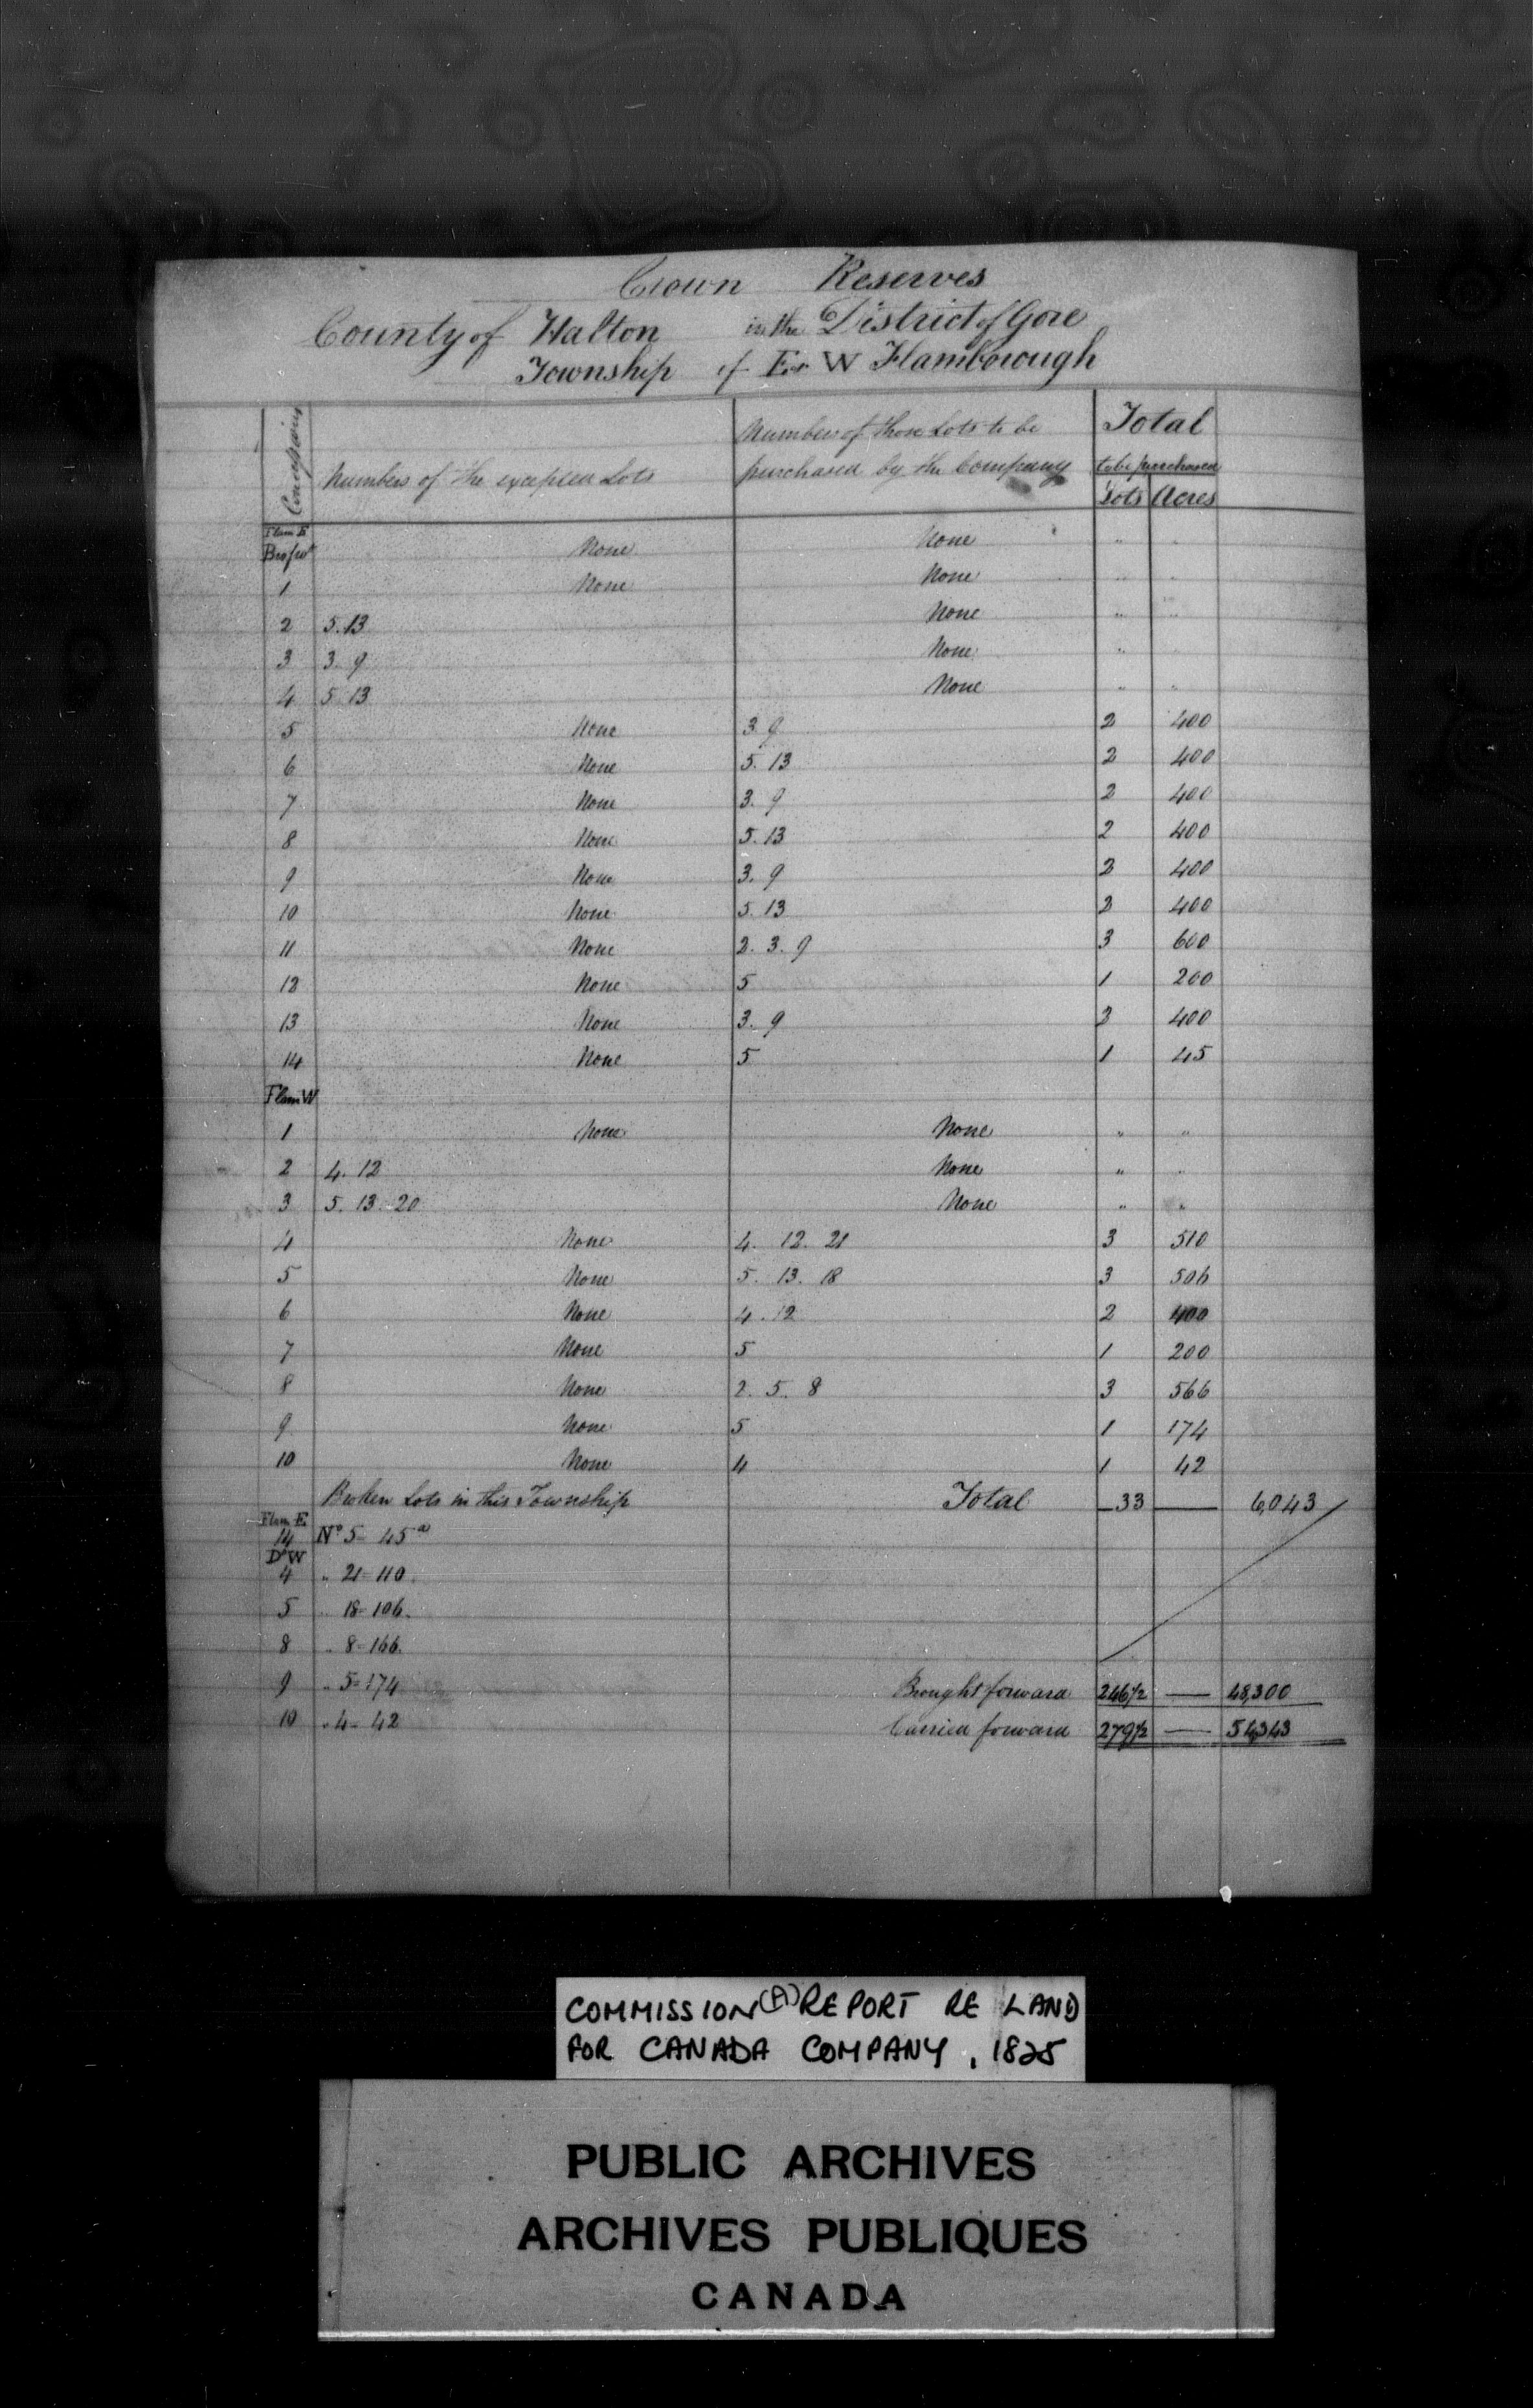 Crown Reserves
County of Halton in the District of Gore
Township of E & W Flamborough
Concessions Numbers of the excepted Lots Number of those Lots to be purchased by the Company Total to be purchased Lots Acres
Flam E
None None " "
1 None None " "
2 5. 13 None " "
3 3. 9 None " "
4 5. 13 None " "
5 None 3. 9 2 400
6 None 5. 13 2 400
7 None 3. 9 2 400
8 None 5. 13 2 400
9 None 3. 9 2 400
10 None 5. 13 2 400
11 None 2. 3. 9 3 600
12 None 5 1 200
13 None 3. 9 2 400
14 None 5 1 45
Flam W
1 None None " "
2 4. 12 None " "
3 5. 13. 20 None " "
4 None 4. 12. 21 3 510
5 None 5. 13. 18 3 506
6 None 4. 12 2 400
7 None 5 1 200
8 None 2. 5. 8 3 566
9 None 5 1 174
10 None 4 1 42
Broken Lots in this Township Total 33 6,043
Flam E.
14 No 5 - 45 a
Do W
4 " 21 - 110.
5 " 18 - 106.
8 " 8 - 166.
9 " 5 - 174 Brought forward 246 1/2 48,300
10 " 4 - 42 Carried forward 279 1/2 54,343
COMMISSION (A) REPORT RE LAND
FOR CANADA COMPANY, 1825
PUBLIC ARCHIVES
ARCHIVES PUBLIQUES
CANADA